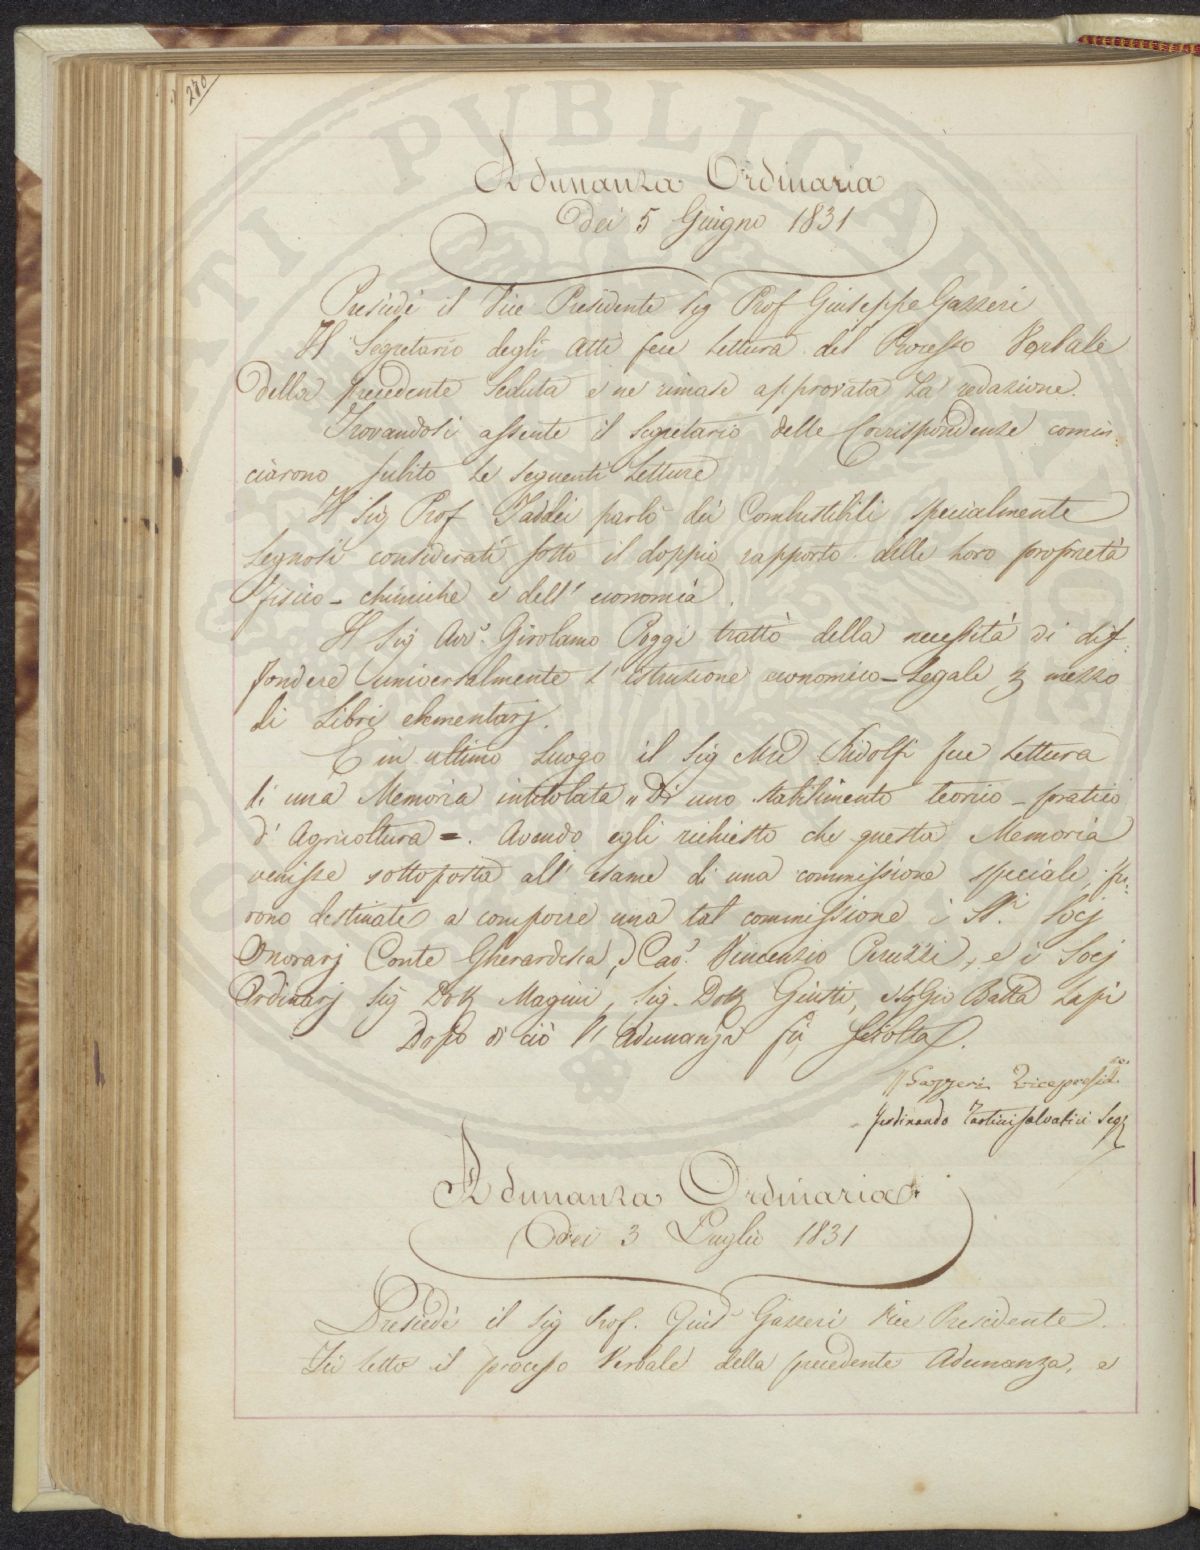 280
Adunanza Ordinaria
Dei 5 Giugno 1831
Presiedè il Vice Presidente Sig Prof Giuseppe Gazzeri
Il Segretario degli Atti fece Lettura del Processo Verbale
della precedente Seduta e ne rimase approvata La redazione.
Trovandosi assente il Segretario delle Corrispondenze comin:
ciarono subito Le seguenti Letture
Il Sig Prof Taddei parlò dei Combustibili specialmente
Legnosi considerati sotto il doppio rapporto delle Loro proprietà
fisico-chimiche e dell' economia.
Il Sig Avv.º Girolamo Poggi trattò della necessità di dif:
fondere universalmente L'istruzione economico-Legale p mezzo
di Libri elementarj.
E in ultimo Luogo il Sig Mse Ridolfi fece Lettura
di una Memoria intitolata "Di uno stabilimento teorico-pratico
d'Agricoltura =. Avendo egli richiesto che questa Memoria
venisse sottoposta all'esame di una commissione speciale, fu:
rono destinate a comporre una tal commissione i SS.ri Socj
Onorarj Conte Gherardesca, Cav.º Vincenzio Peruzzi, e i Socj
Ordinarj Sig Dott Magini, Sig. Dott Giusti, e Sig Gio Batta Lapi
Dopo di ciò L'Adunanza fù sciolta.
Gazzeri Vicepresid.te
Ferdinando Tartini Salvatici Seg
Adunanza Ordinaria
Dei 3 Luglio 1831
Presiedè il Sig Prof. Gius Gazzeri Vice Presidente.
Fu Letto il processo Verbale della precedente Adunanza, e
PUBLICAE